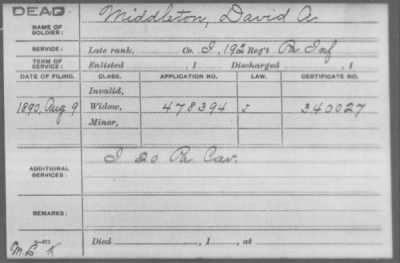 DEAD
NAME OF SOLDIER: Middleton, David A.
SERVICE: Late rank, Co. I, 192 Reg't Pa Inf
TERM OF SERVICE: Enlisted , 1 Discharged , 1
DATE OF FILING. CLASS. APPLICATION NO. LAW. CERTIFICATE NO.
Invalid,
1890, Aug 9 Widow, 478394 J 340027
Minor,
ADDITIONAL SERVICES: I 20 Pa Cav.
REMARKS:
Died , 1 , at